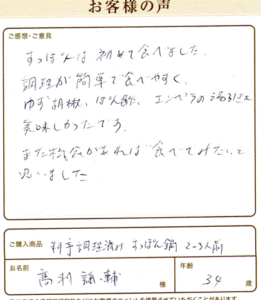 お客様の声
ご感想・ご意見
すっぽんは初めて食べました。
調理が簡単で食べやすく、
ゆず胡椒、ぽん酢、エンペラの
美味しかったです。
また機会があれば食べてみたいと
思いました
ご購入商品
料亭調理済み すっぽん鍋 2~3人前
お名前
様
年齢
34
歳